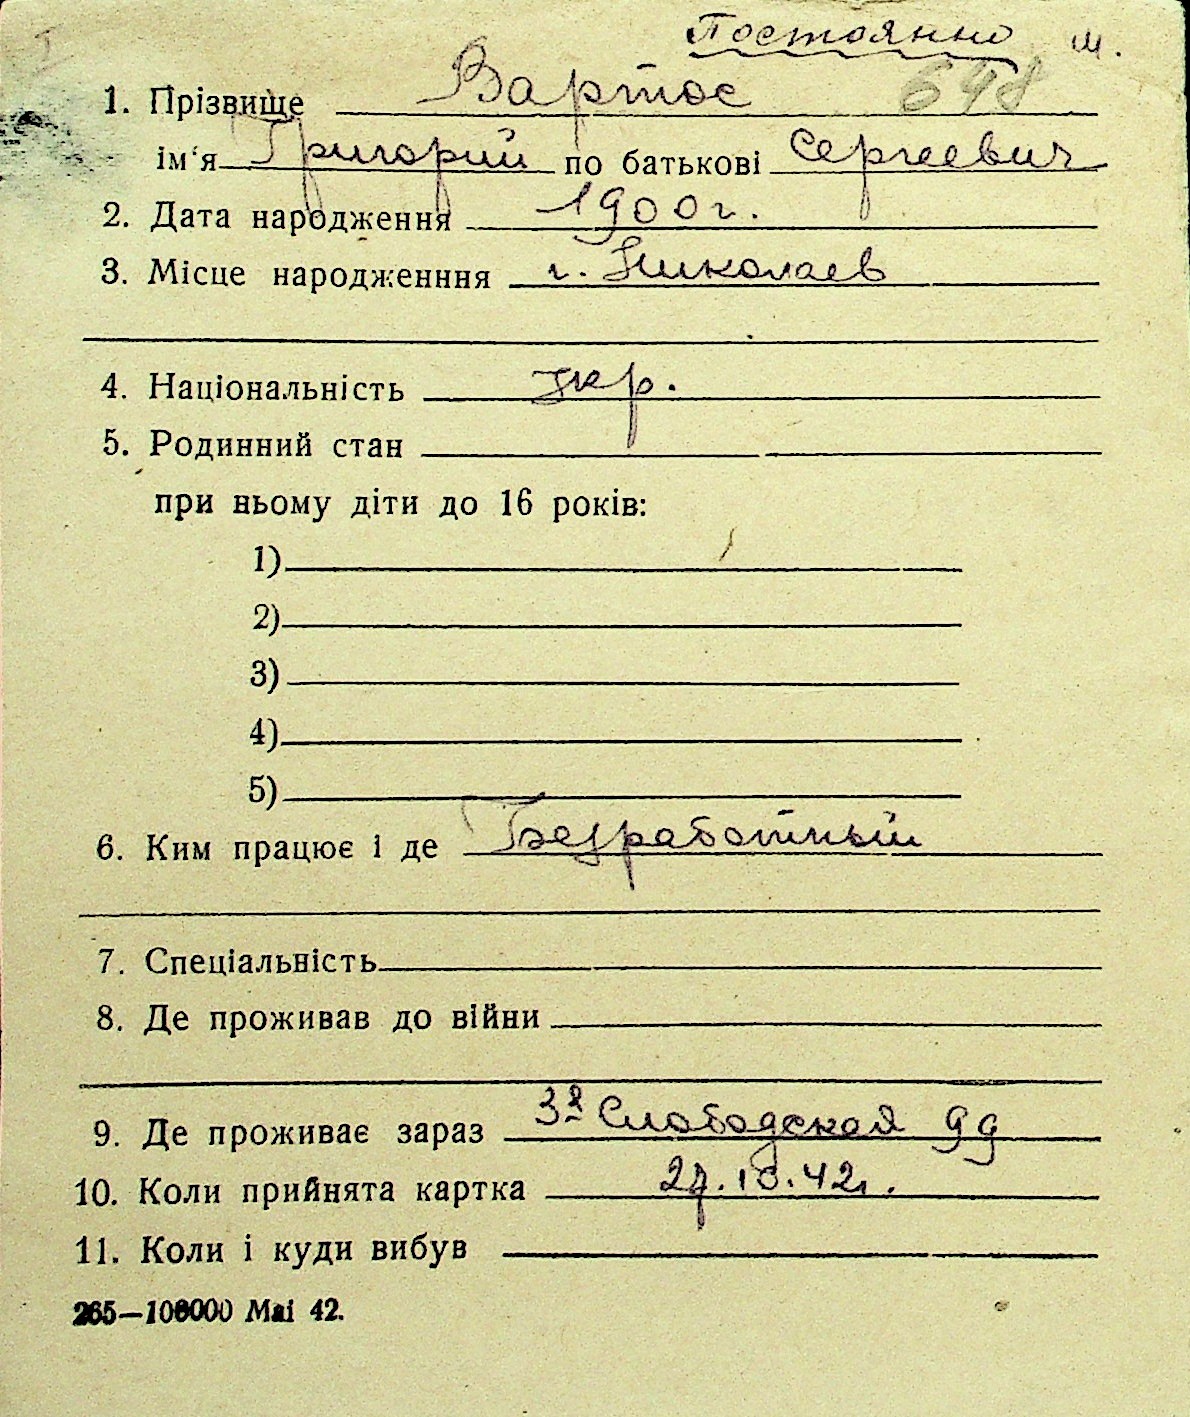 Постоянно ш.
1. Прізвище Вартос 648
ім'я Григорий по батькові Сергеевич
2. Дата народження 1900г.
3. Місце народженння г. Николаев
4. Національність укр.
5. Родинний стан
при ньому діти до 16 років:
1)
2)
3)
4)
5)
6. Ким працює і де Безработный
7. Спеціальність
8. Де проживав до війни
9. Де проживає зараз 3я Слободская 99
10. Коли прийнята картка 27.10.42г.
11. Коли і куди вибув
265—100000 Маі 42.